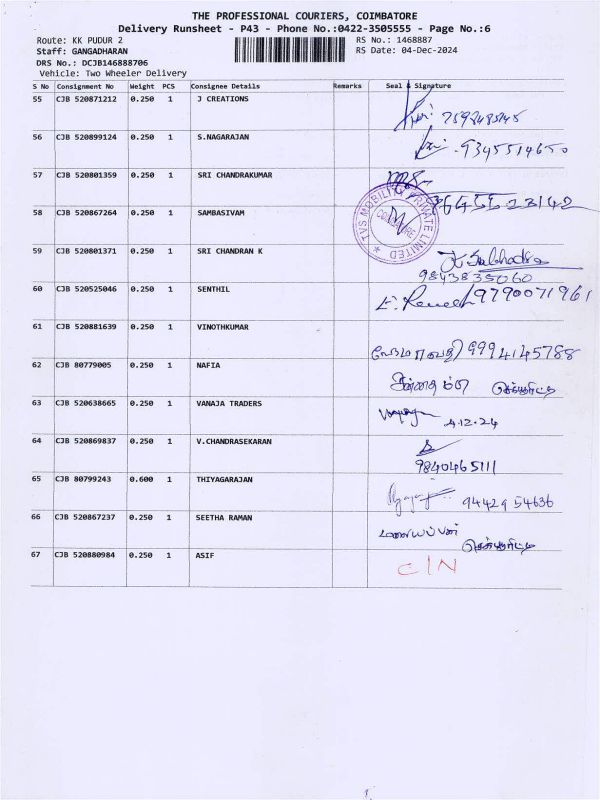 THE PROFESSIONAL COURIERS, COIMBATORE
Delivery Runsheet - P43 - Phone No.:0422-3505555 - Page No.:6
Route: KK PUDUR 2 RS No.: 1468887
Staff: GANGADHARAN RS Date: 04-Dec-2024
DRS No.: DCJB146888706
Vehicle: Two Wheeler Delivery
S No Consignment No Weight PCS Consignee Details Remarks Seal & Signature
55 CJB 520871212 0.250 1 J CREATIONS
56 CJB 520899124 0.250 1 S.NAGARAJAN
9345514650
57 CJB 520801359 0.250 1 SRI CHANDRAKUMAR
58 CJB 520867264 0.250 1 SAMBASIVAM
TVS MOBILITY PRIVATE LIMITED
COIMBATORE
59 CJB 520801371 0.250 1 SRI CHANDRAN K
9843835060
60 CJB 520525046 0.250 1 SENTHIL
9790071961
61 CJB 520881639 0.250 1 VINOTHKUMAR
9994145788
62 CJB 80779005 0.250 1 NAFIA
செக்யூரிட்டி
63 CJB 520638665 0.250 1 VANAJA TRADERS
4.12.24
64 CJB 520869837 0.250 1 V.CHANDRASEKARAN
9840465111
65 CJB 80799243 0.600 1 THIYAGARAJAN
9442954636
66 CJB 520867237 0.250 1 SEETHA RAMAN
செக்யூரிட்டி
67 CJB 520880984 0.250 1 ASIF
C/N